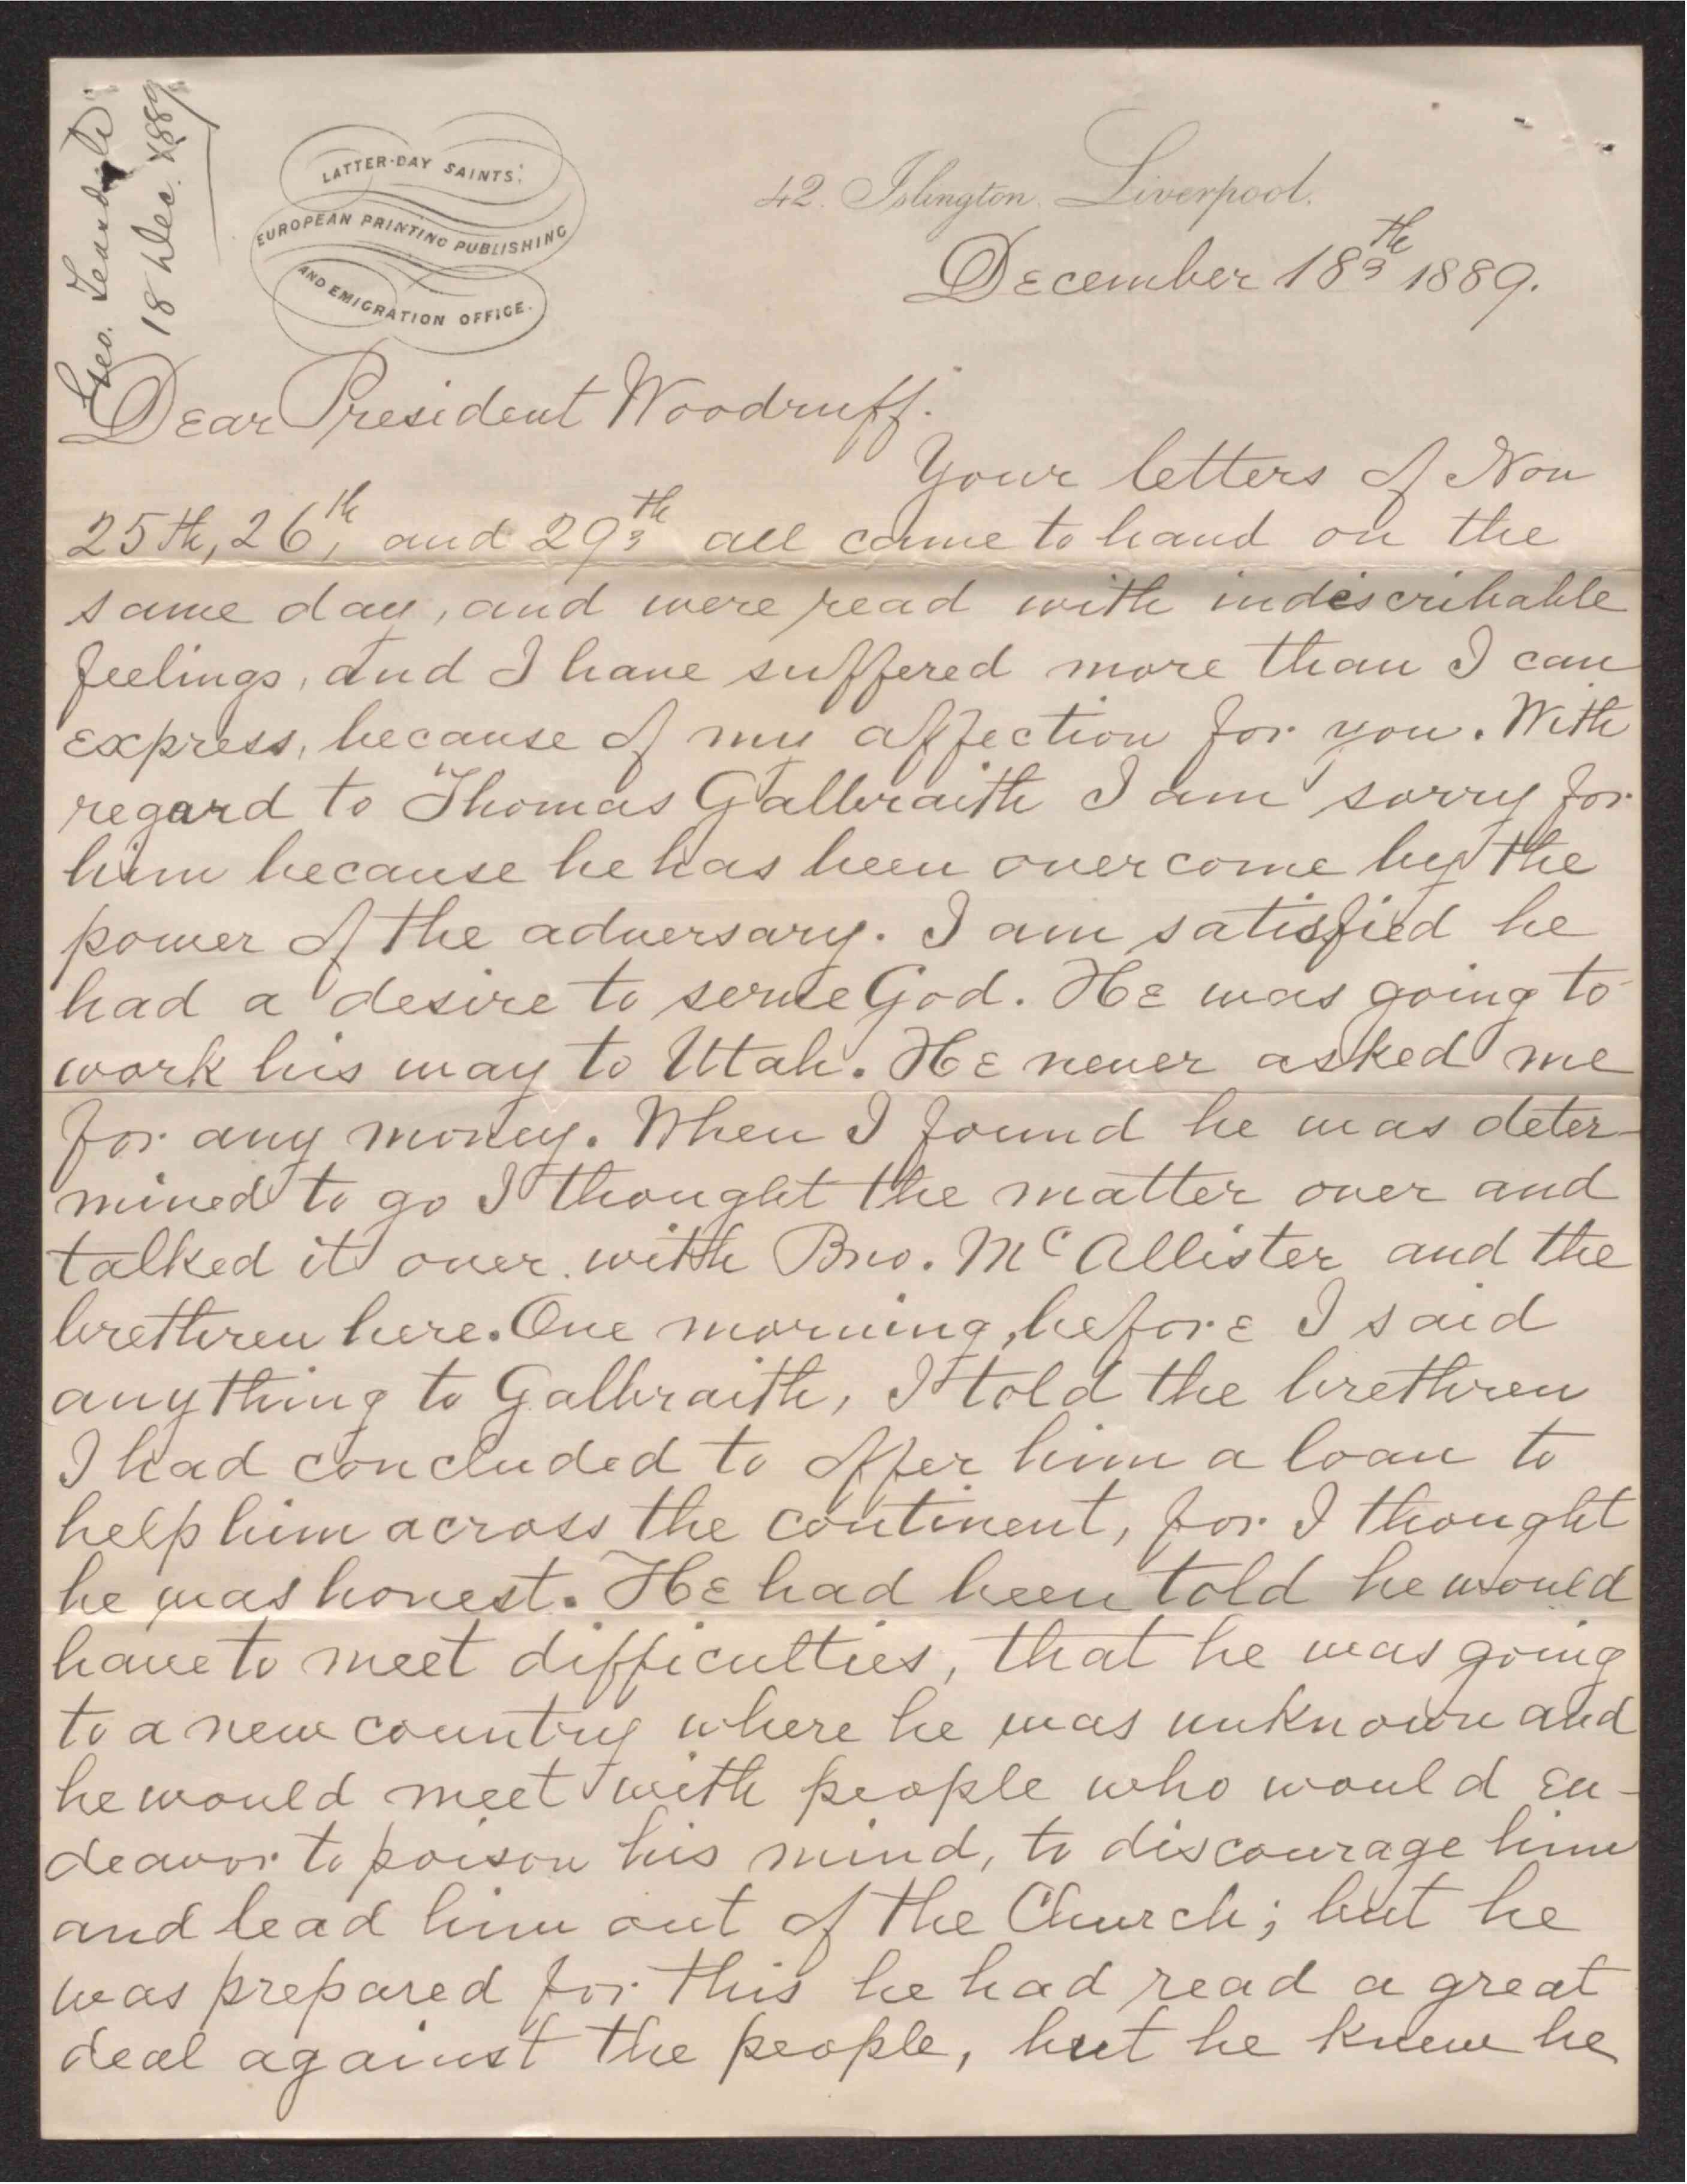 Geo. Teasdale
18 Dec. 1889
LATTER-DAY SAINTS'
EUROPEAN PRINTING PUBLISHING
AND EMIGRATION OFFICE.
42. Islington. Liverpool.
December 18th 1889.
Dear President Woodruff.
Your letters of Nov
25th, 26th, and 29th all came to hand on the
same day, and were read with indescribable
feelings, and I have suffered more than I can
express, because of my affection for you. With
regard to Thomas Galbraith I am sorry for
him because he has been overcome by the
power of the adversary. I am satisfied he
had a desire to serve God. He was going to
work his way to Utah. He never asked me
for any money. When I found he was deter-
mined to go I thought the matter over and
talked it over with Bro. McAllister and the
brethren here. One morning, before I said
anything to Galbraith, I told the brethren
I had concluded to offer him a loan to
help him across the continent, for I thought
he was honest. He had been told he would
have to meet difficulties, that he was going
to a new country where he was unknown and
he would meet with people who would en-
deavor to poison his mind, to discourage him
and lead him out of the Church; but he
was prepared for this he had read a great
deal against the people, but he knew he